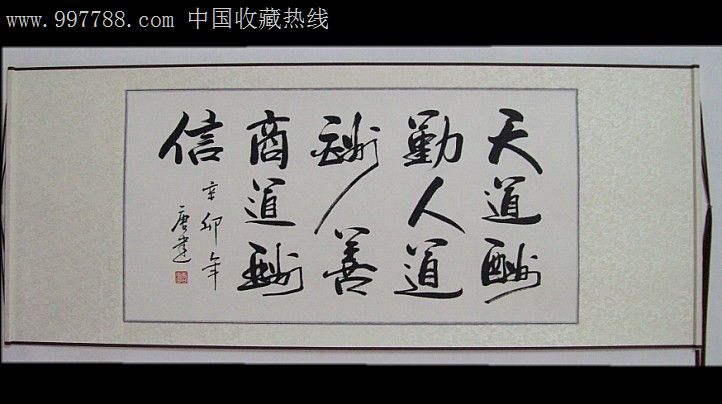 www.997788.com 中国收藏热线
天道酬
勤人道
酬善
商道酬
信
辛卯年
唐建